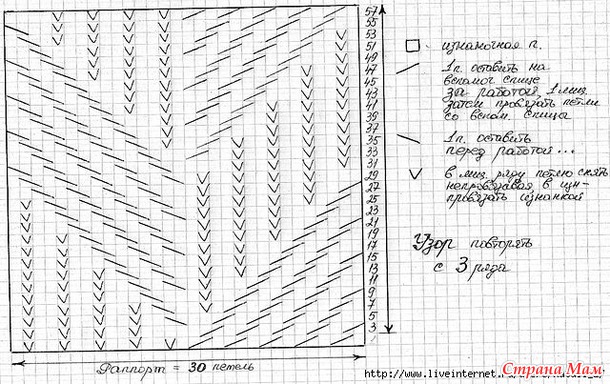 57
55
53
51
49
47
45
43
41
39
37
35
33
31
29
27
25
23
21
19
17
15
13
11
9
7
5
3
1
изнаночная п.
1п. оставить на
вспомог. спице
за работой, 1 лиц.
затем провязать петлю
со вспом. спицы
1п. оставить
перед работой...
в лиц. ряду петлю снять
непровязывая, в из-
провязать изнанкой
Узор повторять
с 3 ряда
Раппорт = 30 петель
http://www.liveinternet.
Страна Мам